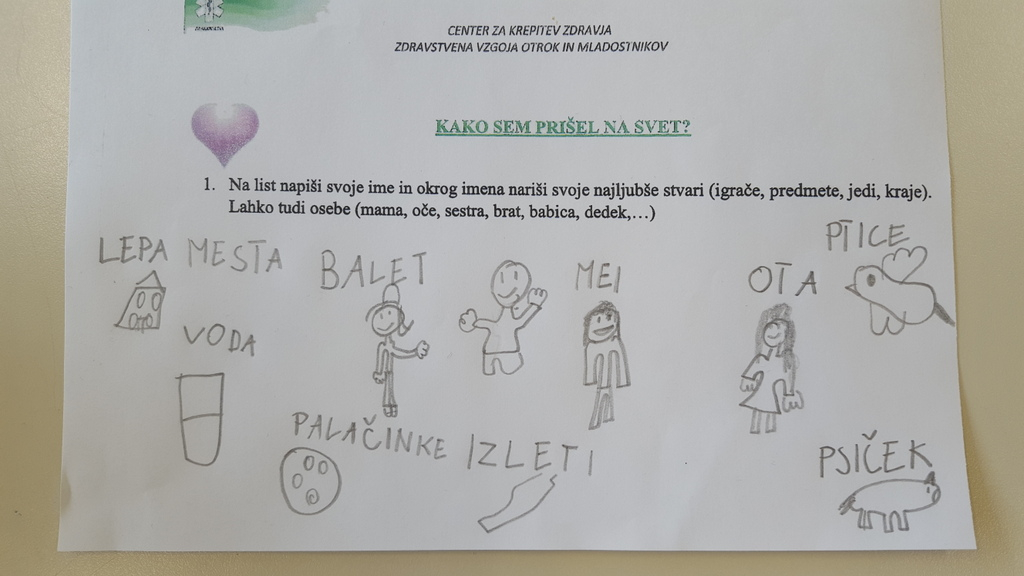 CENTER ZA KREPITEV ZDRAVJA
ZDRAVSTVENA VZGOJA OTROK IN MLADOSTNIKOV
KAKO SEM PRIŠEL NA SVET?
1. Na list napiši svoje ime in okrog imena nariši svoje najljubše stvari (igrače, predmete, jedi, kraje).
Lahko tudi osebe (mama, oče, sestra, brat, babica, dedek,…)
LEPA MESTA
BALET
MEI
OTA
PTICE
VODA
PALAČINKE
IZLETI
PSIČEK